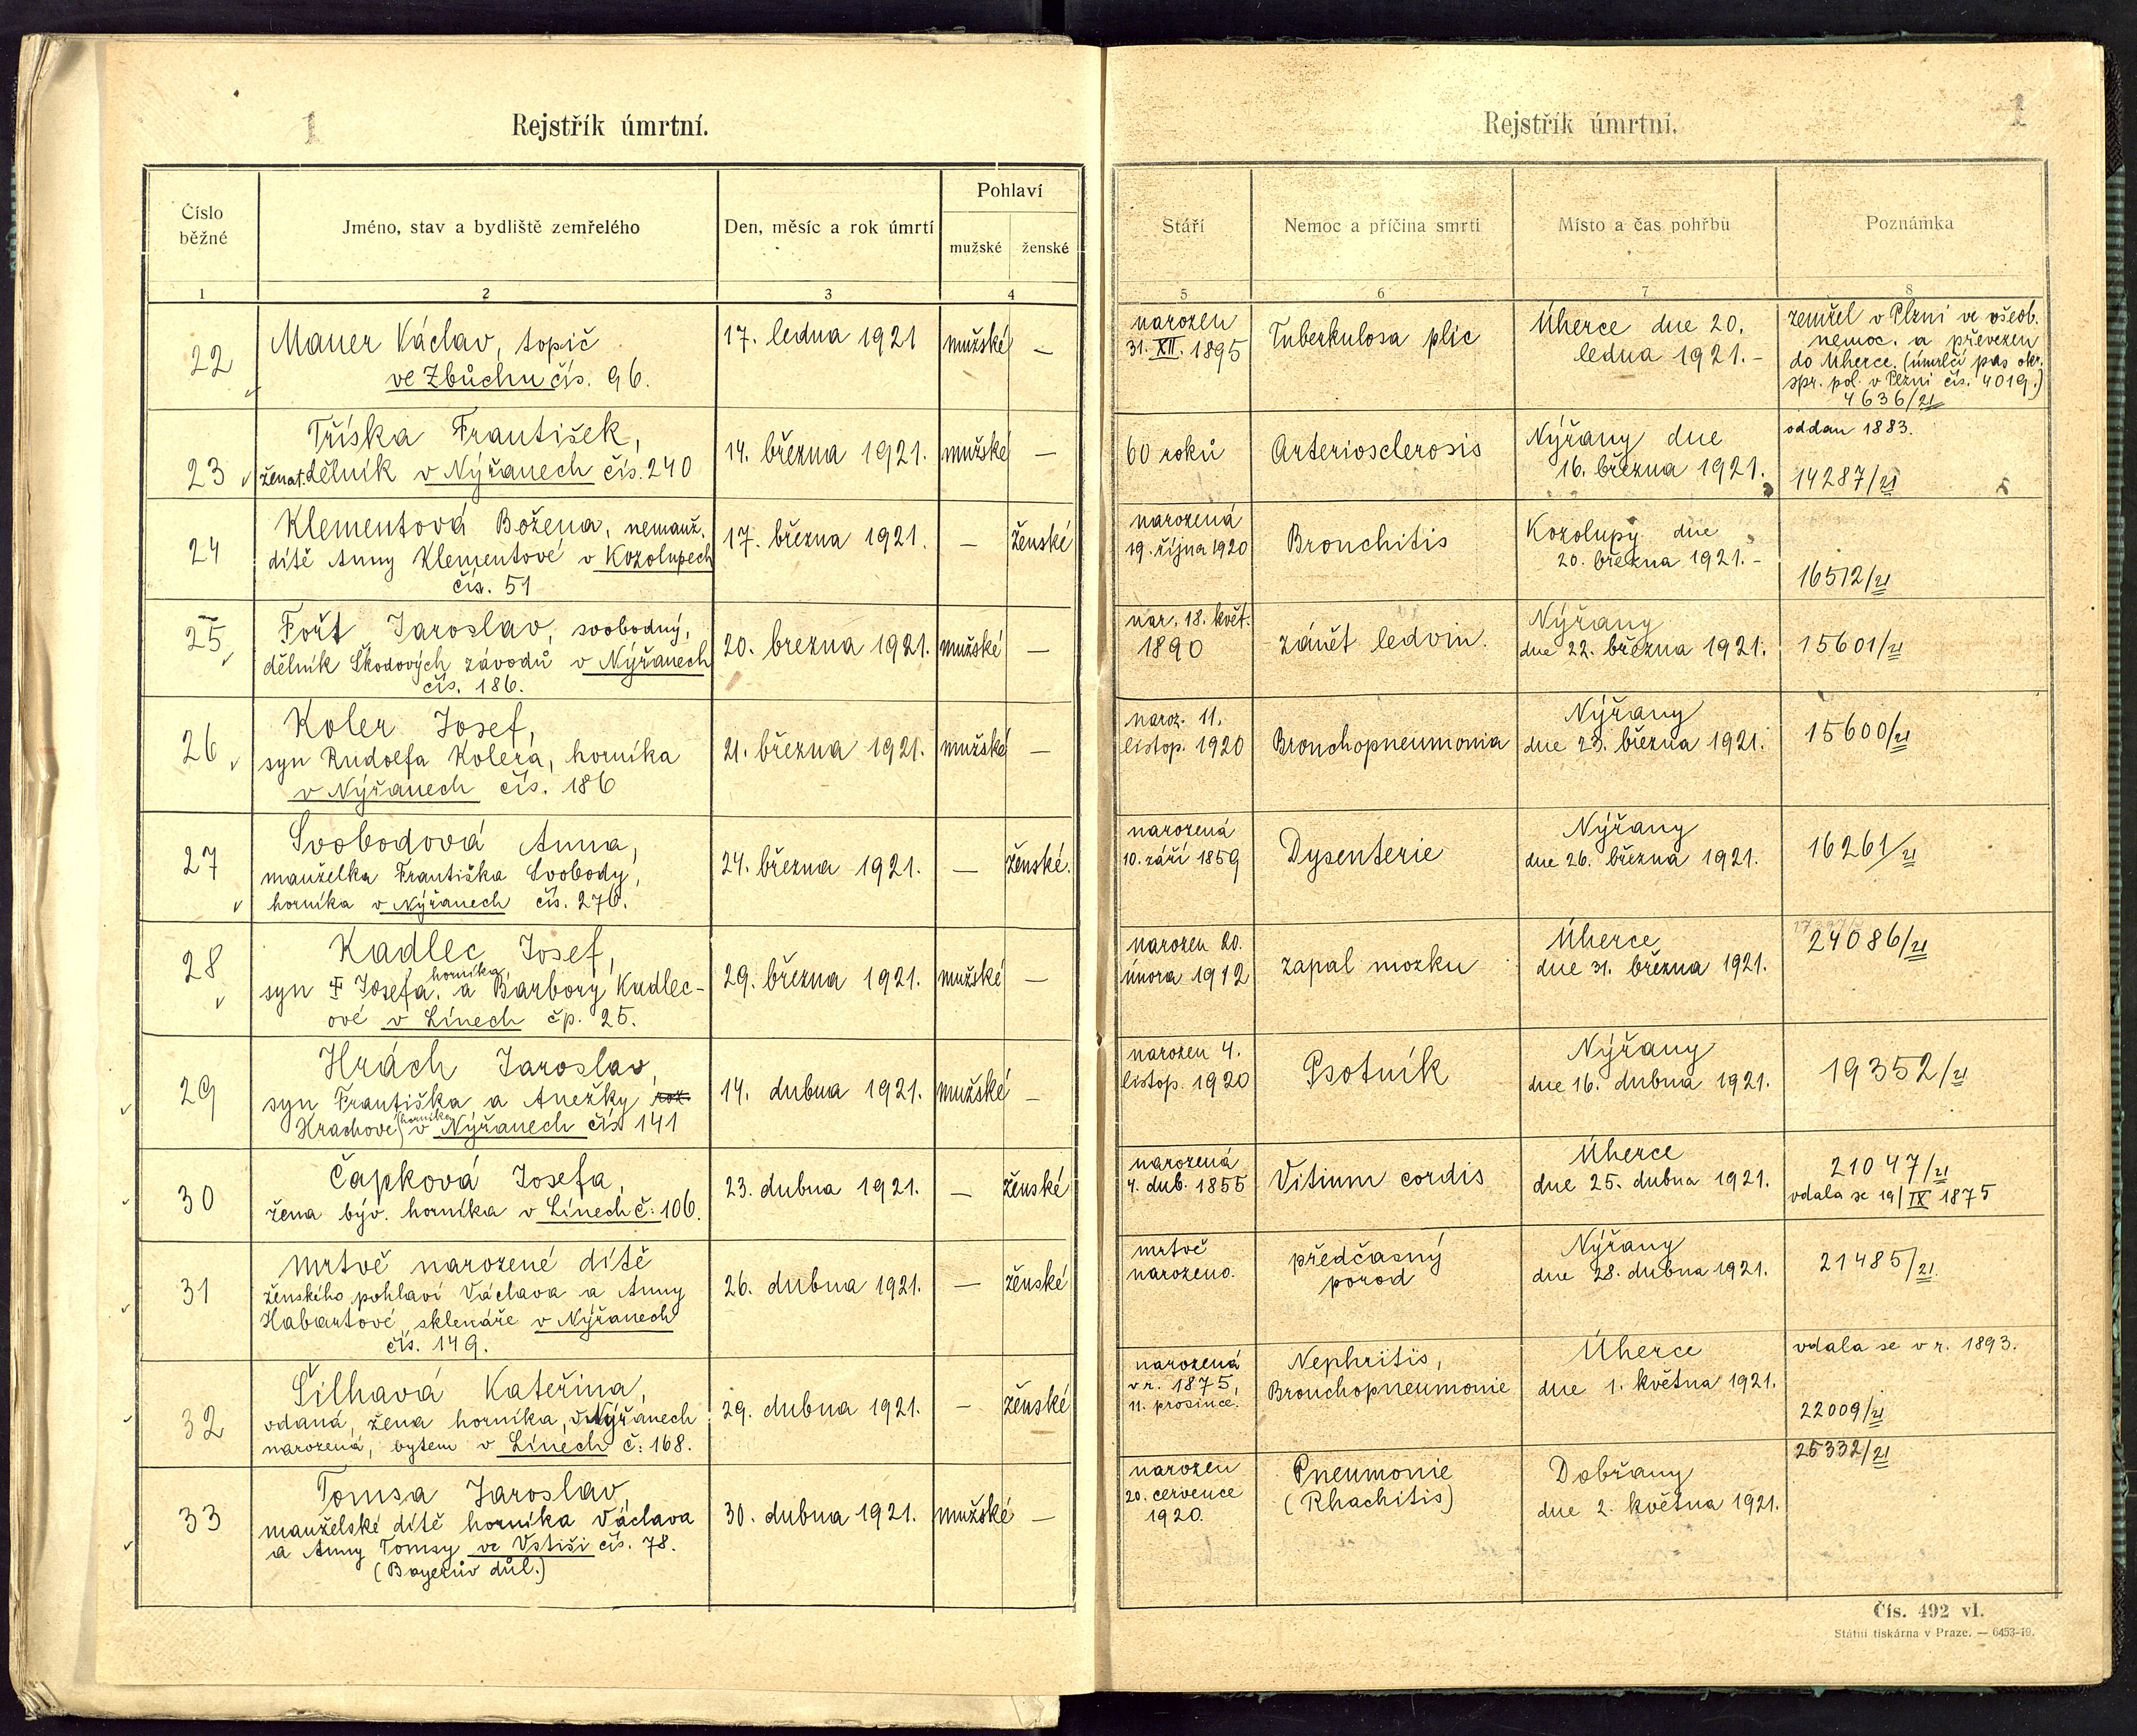 1
Rejstřík úmrtní.
Číslo běžné
Jméno, stav a bydliště zemřelého
Den, měsíc a rok úmrtí
Pohlaví
mužské
ženské
1
2
3
4
22
Mauer Václav, topič
ve Zbůchu čís. 96.
17. ledna 1921
mužské
—
23
Tříska František,
ženat. dělník v Nýřanech čís. 240
14. března 1921.
mužské
—
24
Klementová Božena, nemanž.
dítě Anny Klementové v Kozolupech
čís. 51
17. března 1921.
—
ženské
25
Fořt Jaroslav, svobodný,
dělník Škodových závodů v Nýřanech
čís. 186.
20. brezna 1921.
mužské
—
26
Koler Josef,
syn Rudolfa Kolera, horníka
v Nýřanech čís. 186
21. března 1921.
mužské
—
27
Svobodová Anna,
manželka Františka Svobody,
horníka v Nýřanech čís. 276.
24. března 1921.
—
ženské.
28
Kadlec Josef,
horníka,
syn ‡ Josefa, a Barbory Kadlec-
ové v Línech čp. 25.
29. března 1921.
mužské
—
29
Hrách Jaroslav,
syn Františka a Anežky roz.
Hrachové (horníka) v Nýřanech čís 141
14. dubna 1921.
mužské
—
30
Čapková Josefa,
žena býv. horníka v Línech č: 106.
23. dubna 1921.
—
ženské
31
Mrtvě narozené dítě
ženského pohlaví Václava a Anny
Habartové, sklenáře v Nýřanech
čís. 149.
26. dubna 1921.
—
ženské
32
Šilhavá Kateřina,
vdaná, žena horníka, v Nýřanech
narozená, bytem v Línech č: 168.
29. dubna 1921.
—
ženské
33
Tomsa Jaroslav,
manželské dítě horníka Václava
a Anny Tomsy ve Vstiši čís. 78.
(Bayerův důl.)
30. dubna 1921.
mužské
—
1
Rejstřík úmrtní.
Stáří
Nemoc a příčina smrti
Místo a čas pohřbu
Poznámka
5
6
7
8
narozen
31. XII. 1895
Tuberkulosa plic
Úherce dne 20.
ledna 1921.-
zemřel v Plzni ve všeob.
nemoc. a převezen
do Úherce. (úmrlčí pas okr.
spr. pol. v Plzni čís. 4019.)
4636/21
60 roků
Arteriosclerosis
Nýřany dne
16. března 1921.
oddan 1883.
14287/21
narozená
19. října 1920
Bronchitis
Kozolupy dne
20. března 1921.-
16512/21
nar. 18. květ.
1890
zánět ledvin.
Nýřany
dne 22. března 1921.
15601/21
naroz. 11.
listop. 1920
Bronchopneumonia
Nýřany
dne 23. března 1921.
15600/21
narozená
10. září 1859
Dysenterie
Nýřany
dne 26. března 1921.
16261/21
narozen 20.
února 1912
zapal mozku
Úherce
dne 31. března 1921.
24086/21
narozen 4.
listop. 1920
Psotník
Nýřany
dne 16. dubna 1921.
19352/21
narozená
4. dub. 1855
Vitium cordis
Úherce
dne 25. dubna 1921.
21047/21
vdala se 19/IX 1875
mrtvě
narozeno.
předčasný
porod
Nýřany
dne 28. dubna 1921.
21485/21
narozená
v r. 1875,
11. prosince.
Nephritis,
Bronchopneumonie
Úherce
dne 1. května 1921.
vdala se v r. 1893.
22009/21
narozen
20. cervence
1920.
Pneumonie
(Rhachitis)
Dobřany
dne 2. května 1921.
25332/21
Čís. 492 vl.
Státní tiskárna v Praze. — 6453-19.